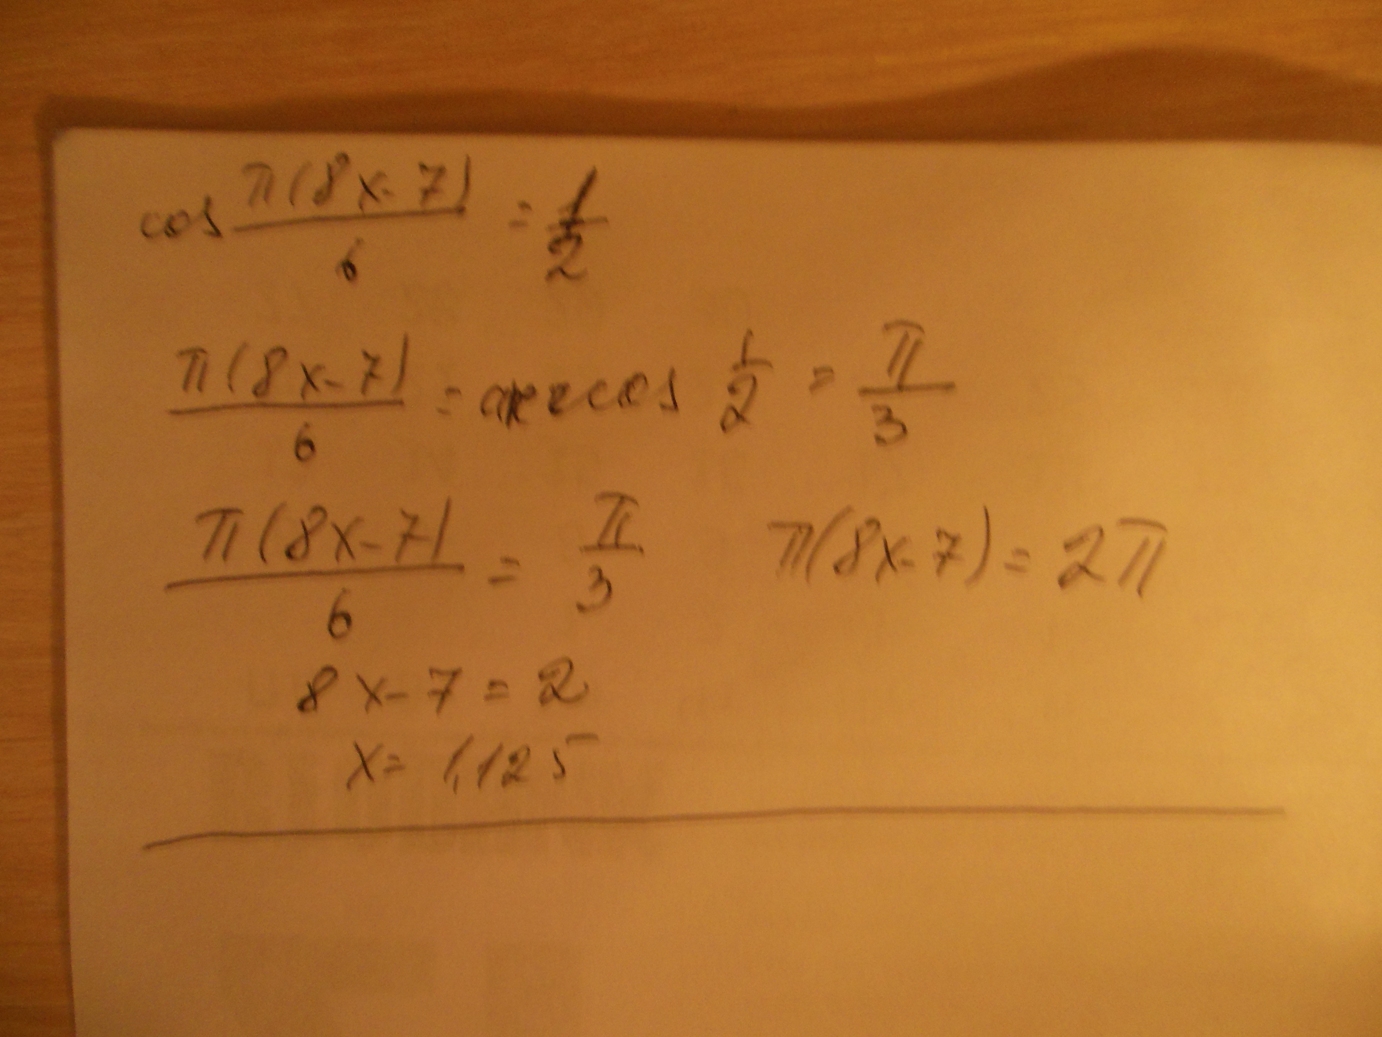 cos π(8x-7)/6 = 1/2
π(8x-7)/6 = arccos 1/2 = π/3
π(8x-7)/6 = π/3 π(8x-7) = 2π
8x-7=2
x=1,125